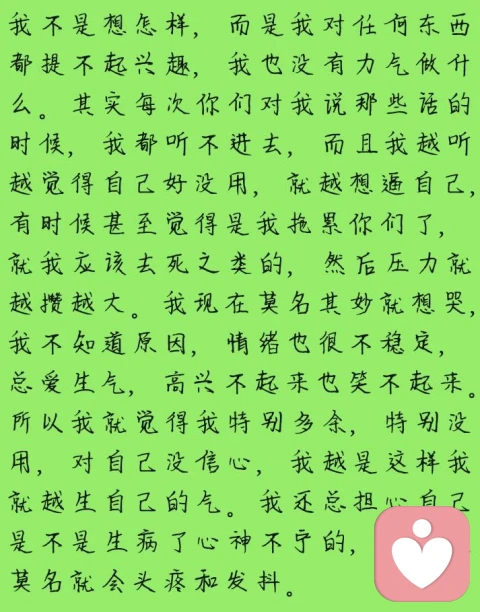 我不是想怎样，而是我对任何东西
都提不起兴趣，我也没有力气做什
么。其实每次你们对我说那些话的
时候，我都听不进去，而且我越听
越觉得自己好没用，就越想逼自己，
有时候甚至觉得是我拖累你们了，
就我应该去死之类的，然后压力就
越攒越大。我现在莫名其妙就想哭，
我不知道原因，情绪也很不稳定，
总爱生气，高兴不起来也笑不起来。
所以我就觉得我特别多余，特别没
用，对自己没信心，我越是这样我
就越生自己的气。我还总担心自己
是不是生病了心神不宁的，
莫名就会头疼和发抖。